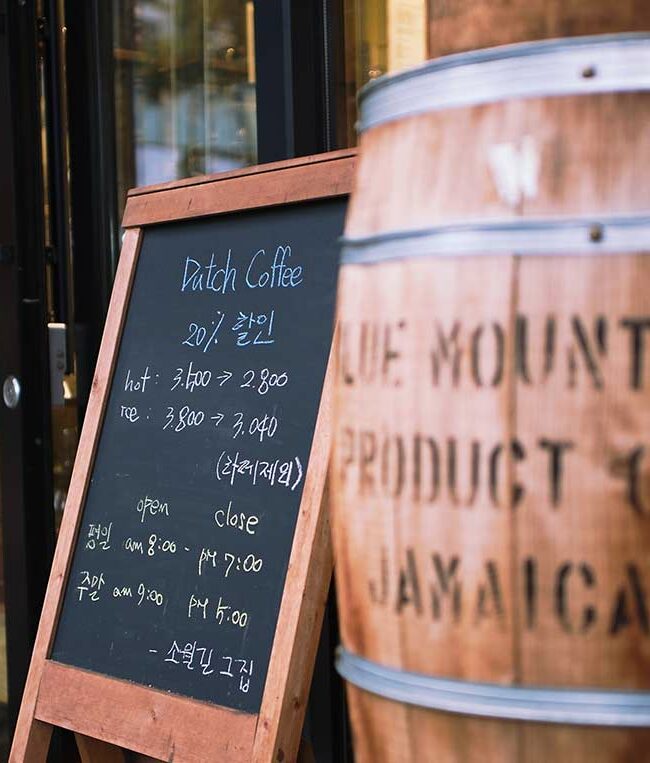 Dutch Coffee
20% 할인
hot : 3.500 → 2.800
ice : 3.800 → 3.040
(라떼제외)
open close
평일 am 8:00 - PM 7:00
주말 am 9:00 PM 5:00
- 소월길 그집
LUE MOUNT
PRODUCT
JAMAICA